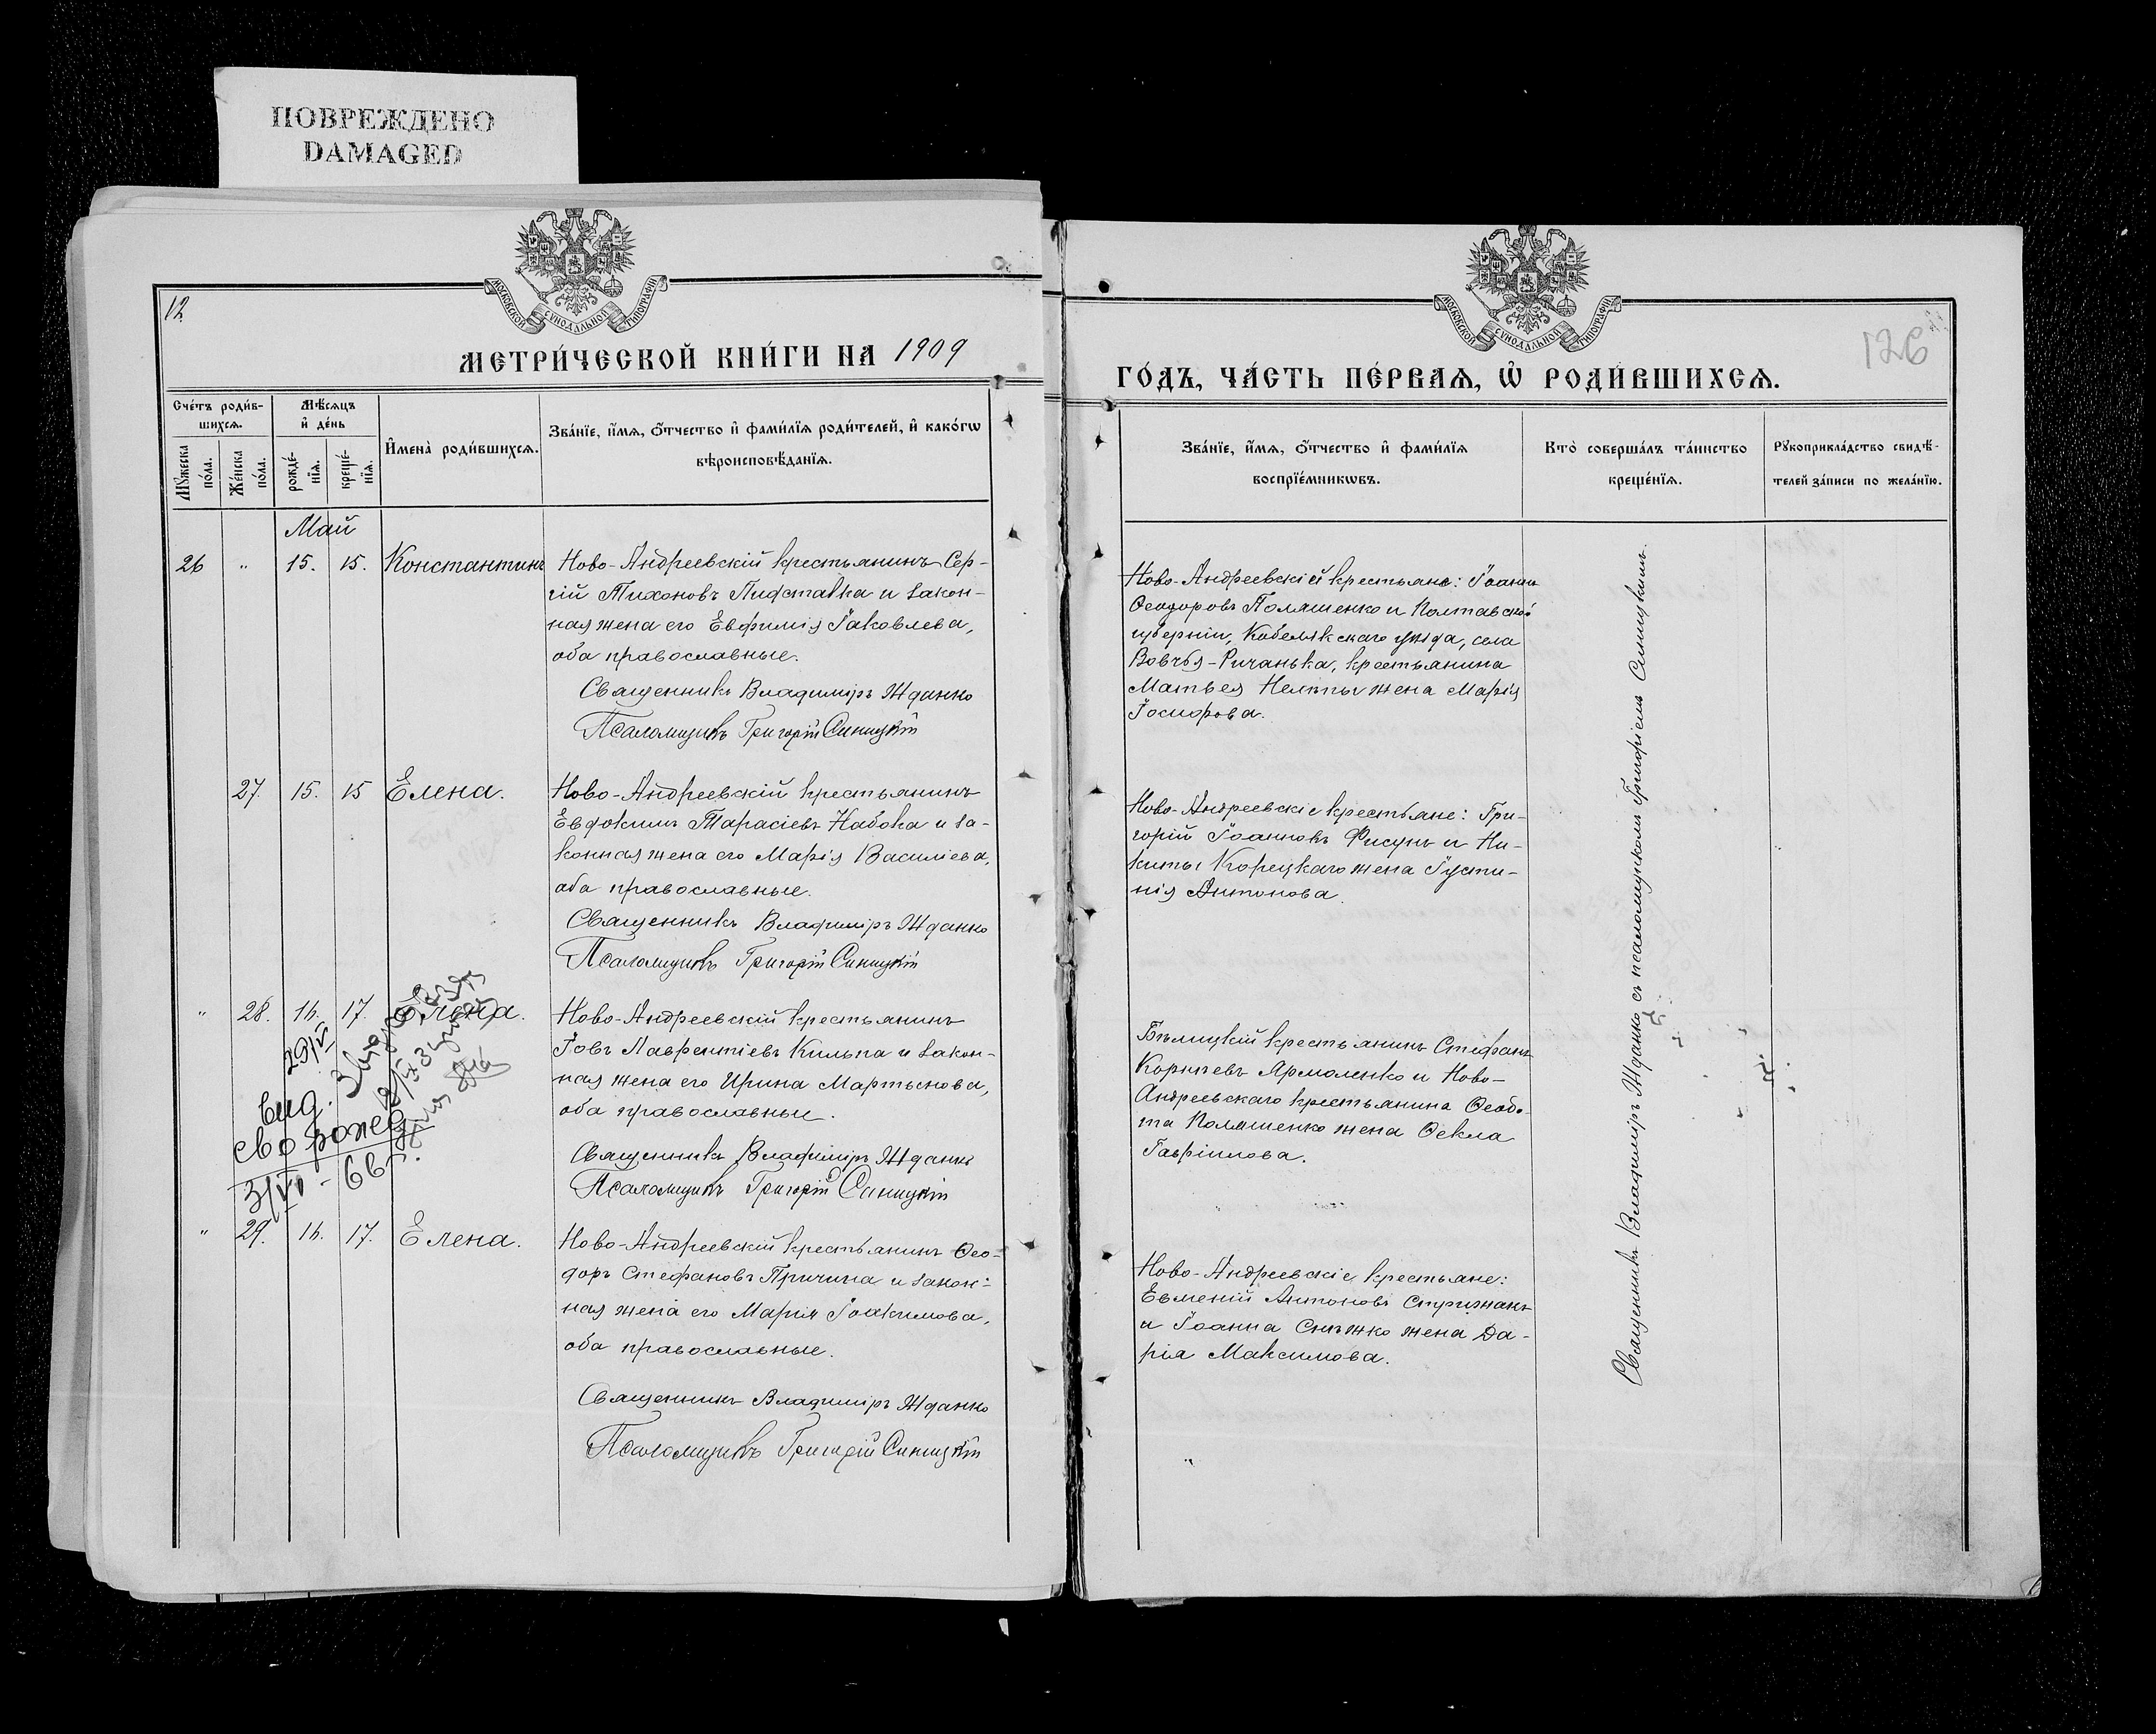 ПОВРЕЖДЕНО
DAMAGED
12
МОСКОВСКОЙ СѴНОДАЛЬНОЙ ТИПОГРАФІИ
МЕТРИ́ЧЕСКОЙ КНИ́ГИ НА 1909
Сче́тъ роди́в-
шихсѧ.
Мѣ́сѧцъ
и҆ де́нь
Мꙋ́жеска
по́ла.
Же́нска
по́ла.
рожде́-
нїѧ.
креще́-
нїѧ.
И҆мена̀ роди́вшихсѧ.
Зва́нїе, и҆́мѧ, ѻ҆́тчество и҆ фами́лїѧ роди́телей, и҆ како́гѡ
вѣроисповѣ́данїѧ.
Май
26 " 15. 15. Константинъ
Ново-Андреевскій крестьянинъ Сер-
гій Тихоновъ Пидставка и закон-
ная жена его Евфимія Іаковлева,
оба православные.
Священникъ Владиміръ Жданко
Псаломщикъ Григорій Синицкій
27. 15. 15 Елена.
Ново-Андреевскій крестьянинъ
Евдокимъ Тарасіевъ Набока и за-
конная жена его Марія Василіева,
оба православные.
Священникъ Владиміръ Жданко
Псаломщикъ Григорій Синицкій
" 28. 16. 17. Елена.
Ново-Андреевскій крестьянинъ
Іовъ Лаврентіевъ Кильпа и закон-
ная жена его Ирина Мартынова,
оба православные.
Священникъ Владиміръ Жданко
Псаломщикъ Григорій Синицкій
29/VI
вид.
сво рожед
3/VI - 66 г.
" 29. 16. 17. Елена.
Ново-Андреевскій крестьянинъ Ѳео-
доръ Стефановъ Причина и закон-
ная жена его Марія Іоакимова,
оба православные.
Священникъ Владиміръ Жданко
Псаломщикъ Григорій Синицкій
МОСКОВСКОЙ СѴНОДАЛЬНОЙ ТИПОГРАФІИ
126
ГО́ДЪ, ЧА́СТЬ ПЕ́РВАѦ, Ѡ҆ РОДИ́ВШИХСѦ.
Зва́нїе, и҆́мѧ, ѻ҆́тчество и҆ фами́лїѧ
воспрїе́мникѡвъ.
Кто̀ соверша́лъ та́инство
креще́нїѧ.
Рꙋкоприкла́дство свидѣ́-
телей за́писи по жела́нїю.
Ново-Андреевскіе крестьяне: Іоаннъ
Ѳеодоровъ Поляшенко и Полтавской
губерніи, Кобелякскаго уѣзда, села
Вовчья-Ричанька, крестьянина
Матвея Нелѣпы жена Марія
Іосифова.
Ново-Андреевскіе крестьяне: Гри-
горій Іоанновъ Фисунъ и Ни-
киты Корецкаго жена Іусти-
нія Антонова.
Бѣлицкій крестьянинъ Стефанъ
Корнѣевъ Ярмоленко и Ново-
Андреевскаго крестьянина Ѳеодо-
та Поляшенко жена Ѳекла
Гавріилова.
Ново-Андреевскіе крестьяне:
Евменій Антоновъ Стрижакъ
и Іоанна Снѣжко жена Да-
рія Максимова.
Священникъ Владиміръ Жданко съ псаломщикомъ Григоріемъ Синицкимъ.